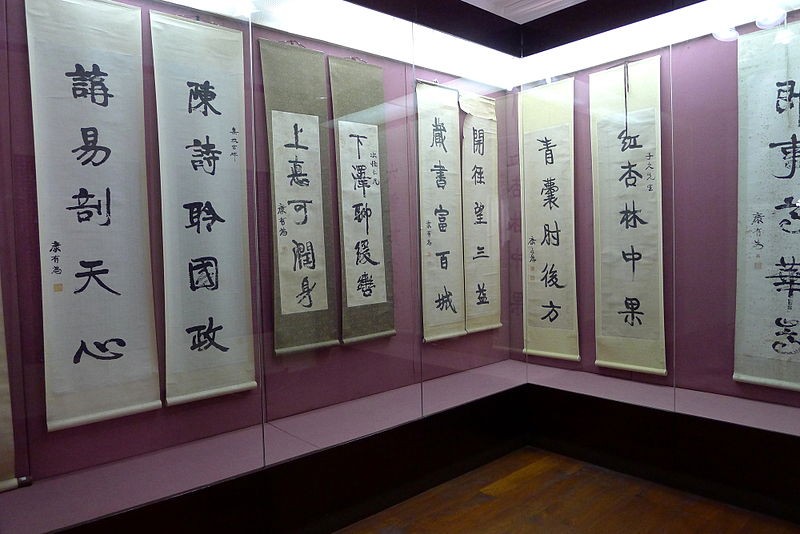 康有為
紅杏林中果
青囊肘後方
康有為
開徑望三益
藏書富百城
康有為
下澤聊緩轡
上惪可潤身
康有為
陳詩聆國政
講易剖天心
康有為